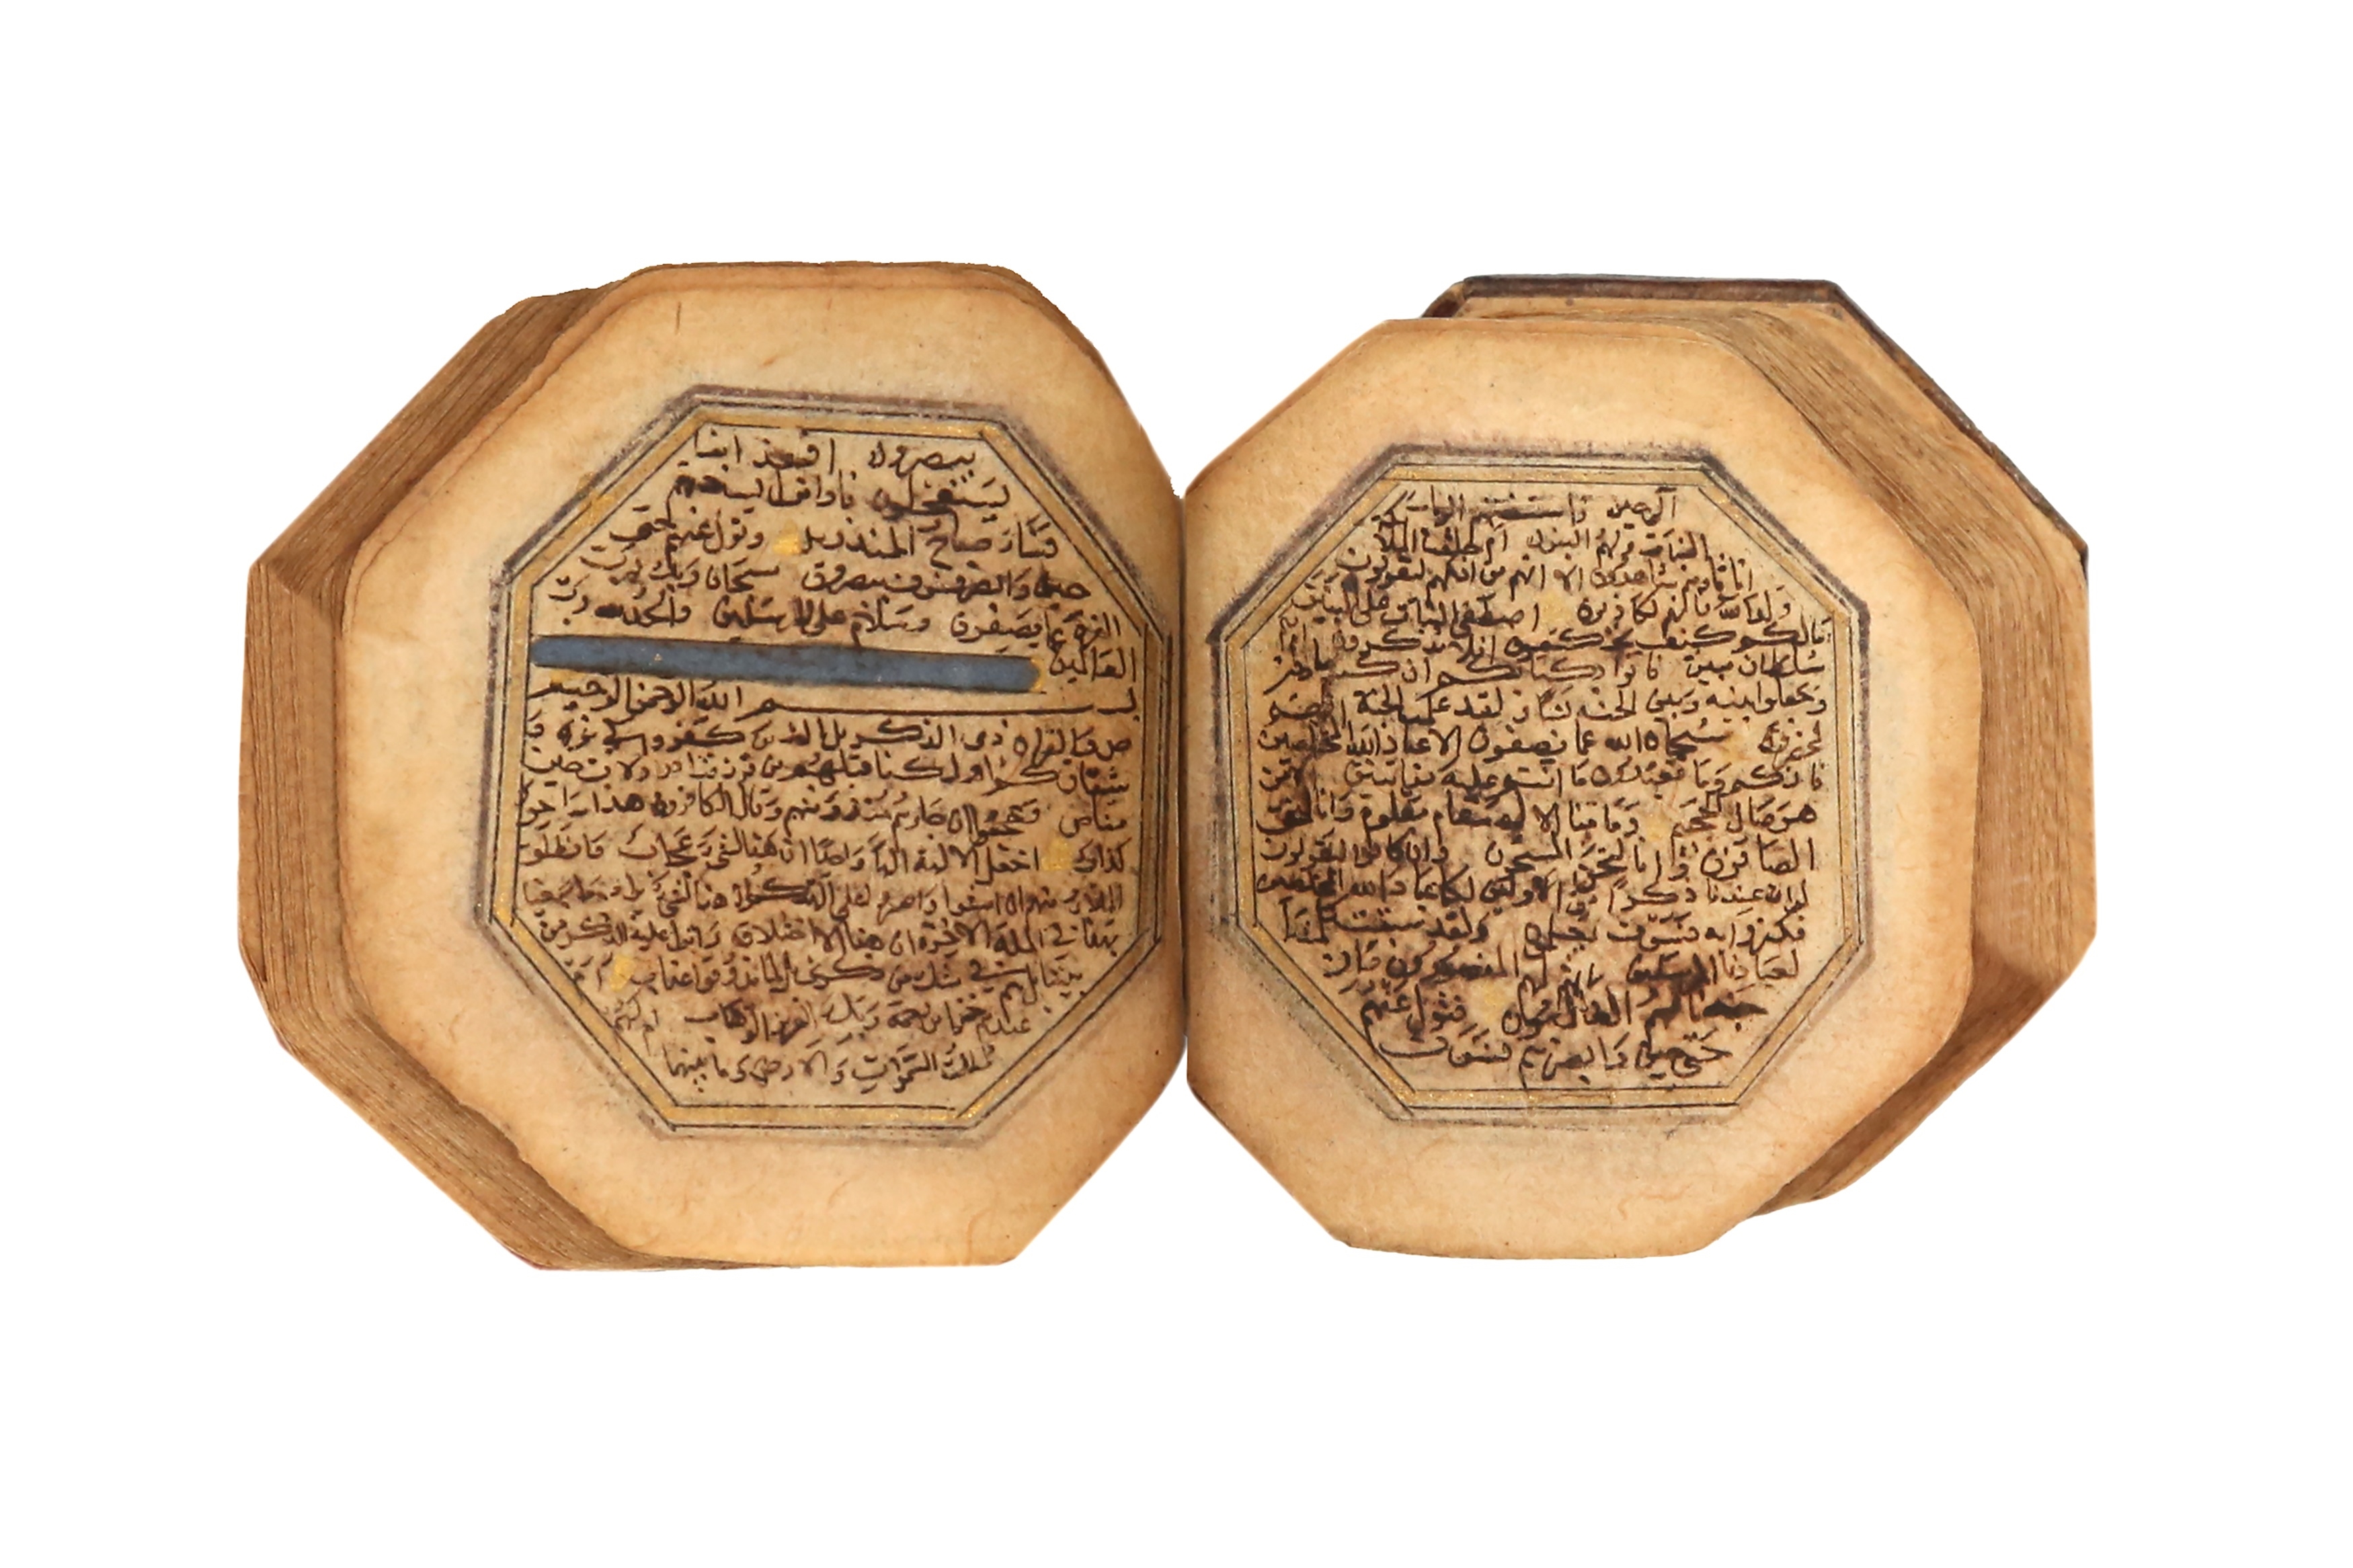 حين فاستفتهم الربك
البنات ولهم البنون ام خلقنا الملائكة
اناثا وهم شاهدون الا انهم من افكهم ليقولون
ولد الله وانهم لكاذبون اصطفى البنات على البنين
مالكم كيف تحكمون افلا تذكرون ام
سلطان مبين فاتوا بكتابكم ان كنتم
وجعلوا بينه وبين الجنة نسبا لقد علمت الجنة انهم
لمحضرون سبحان الله عما يصفون الا عباد الله المخلصين
فانكم وما تعبدون ما انتم عليه بفاتنين الا من
هو صال الجحيم وما منا الا له مقام معلوم وانا لنحن
الصافون وانا لنحن المسبحون وان كانوا ليقولون
لو ان عندنا ذكرا من الاولين لكنا عباد الله المخلصين
فكفروا به فسوف يعلمون ولقد سبقت كلمتنا
لعبادنا المرسلين انهم لهم المنصورون وان
جندنا لهم الغالبون فتول عنهم
حتى حين وابصرهم فسوف
يبصرون افبعذابنا
يستعجلون فاذا نزل بساحتهم
فساء صباح المنذرين وتول عنهم حتى
حين وابصر فسوف يبصرون سبحان ربك رب
العزة عما يصفون وسلام على المرسلين والحمد لله رب
العالمين
بسم الله الرحمن الرحيم
ص والقران ذى الذكر بل الذين كفروا في عزة و
شقاق كم اهلكنا من قبلهم من قرن فنادوا ولات حين
مناص وعجبوا ان جاءهم منذر منهم وقال الكافرون هذا ساحر
كذاب اجعل الالهة الها واحدا ان هذا لشئ عجاب وانطلق
الملا منهم ان امشوا واصبروا على الهتكم ان هذا لشئ يراد ما سمعنا
بهذا في الملة الاخرة ان هذا الا اختلاق ءانزل عليه الذكر من
بيننا بل هم في شك من ذكرى بل لما يذوقوا عذاب ام
عندهم خزائن رحمة ربك العزيز الوهاب ام لهم
ملك السموات والارض وما بينهما